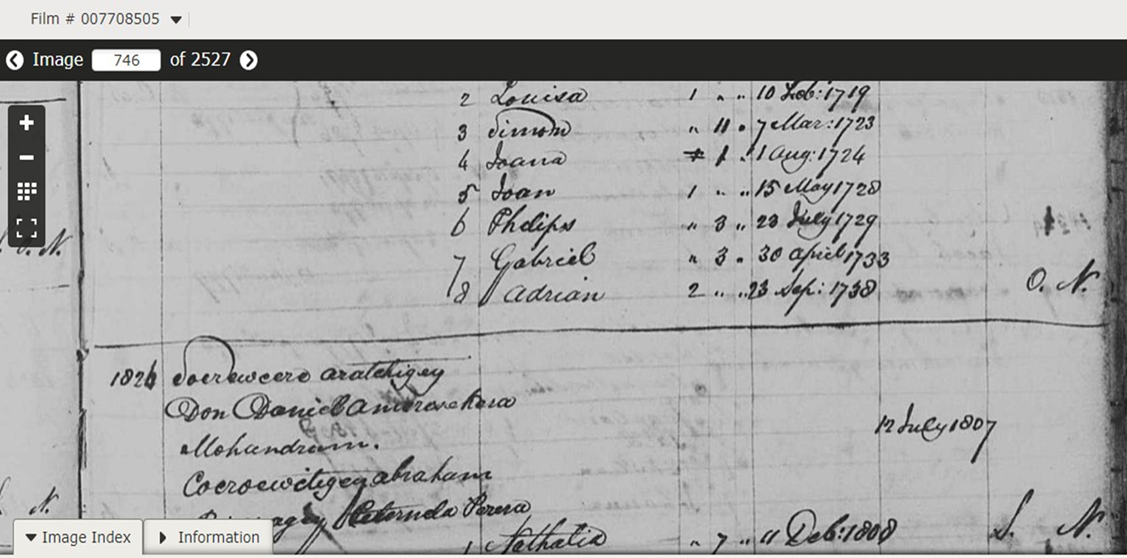 Film # 007708505
Image 746 of 2527
2 Louisa 1 " " 10 Feb: 1719
3 Simon " 11 " 7 Mar: 1723
4 Joana 1 1 Aug: 1724
5 Joan 1 " " 15 May 1728
6 Phelips " 3 " 23 July 1729
7 Gabriel " 3 " 30 april 1733
8 Adrian 2 " " 23 Sep: 1738 O. N.
N.
1826 aratchigey
Don Daniel
Mohandram. 12 July 1807
abraham
Perera
1 Nathalia " 7 " Deb: 1808 S. N.
N.
Image Index Information